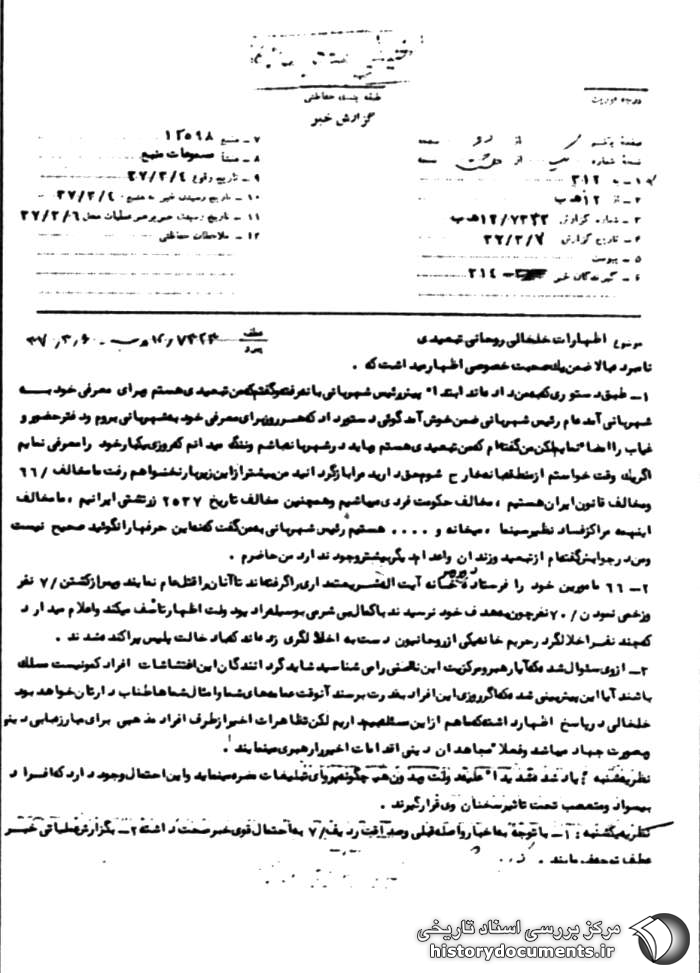 طبقه بندی حفاظتی
گزارش خبر
درجه فوریت
صفحه یکم از دو صفحه
نسخه شماره از نسخه
۱ـ به ۳۱۲
۲ـ از ۱۲هـ ب
۳ـ شماره گزارش ۱۲/۷۳۴۲هـ ب
۴ـ تاریخ گزارش ۳۷/۳/۷
۵ـ پیوست
۶ـ گیرندگان خبر ۳۱۴
۷ـ منبع ۱۲۵۹۸
۸ـ منشأ مسموعات منبع
۹ـ تاریخ وقوع ۳۷/۳/۴
۱۰ـ تاریخ رسیدن خبر به منبع ۳۷/۳/۴
۱۱ـ تاریخ رسیدن خبر برهبر عملیات محل ۳۷/۳/۶
۱۲ـ ملاحظات حفاظتی
موضوع اظهارات خلخالی روحانی تبعیدی
عطف
پیرو
نامبرده بالا ضمن یک صحبت خصوصی اظهار میداشت که .
۱ـ طبق دستوری که بمن داده‌اند ابتدا پیش رئیس شهربانی بانه رفته و گفتم که من تبعیدی هستم و برای معرفی خود به
شهربانی آمده‌ام رئیس شهربانی ضمن خوش آمد گوئی دستور داد که هر روز برای معرفی خود به شهربانی بروم و دفتر حضور و
غیاب را امضاء نمایم لکن من گفته‌ام که من تبعیدی هستم و باید در شهر بانه باشم و ننگ میدانم که روزی یکبار خود را معرفی نمایم
اگر یک وقت خواستم از منطقه بانه خارج شوم حق دارید مرا بازگردانید من بیشتر از این زیر بار نخواهم رفت ما مخالف ۶۶/
و مخالف قانون ایران هستیم ، مخالف حکومت فردی میباشیم و همچنین مخالف تاریخ ۲۵۳۷ زرتشتی ایرانیم ، ما مخالف
اینهمه مراکز فساد نظیر سینما ، میخانه و .... هستیم رئیس شهربانی به من گفت که نه این حرفها را نگوئید صحیح نیست
و من در جوابش گفته‌ام از تبعید و زندان و اعدام دیگر بیشتر وجود ندارد من حاضرم .
۲ـ ۶۶ مامورین خود را فرستاده و خانه آیت الله شریعتمداری را گرفته‌اند تا آنان را قتل عام نمایند و پس از کشتن ۷/ نفر
و زخمی نمودن ۷۰/ نفر چون به هدف خود نرسیدند با کمال بی شرمی بوسیله رادیو دولت اظهار تأسف میکند و اعلام میدارد
که چند نفر اخلالگر در حریم خانه یکی از روحانیون دست به اخلالگری زده‌اند که با دخالت پلیس پراکنده شدند .
۳ـ از وی سئوال شد که آیا رهبر و مرکزیت این ناامنی را می شناسید شاید گردانندگان این اغتشاشات افراد کمونیست مسلک
باشند آیا این پیش بینی شده که اگر روزی این افراد بقدرت برسند آنوقت عمامه‌های شما و امثال شما طناب دارتان خواهد بود
خلخالی در پاسخ اظهار داشته که ما هم از این مسئله بیم داریم لکن تظاهرات اخیر از طرف افراد مذهبی برای مبارزه‌ای دینی
و بصورت جهاد میباشد و فعلا مجاهدان دینی اقدامات اخیر را رهبری مینمایند .
نظریه شنبه : یاد شده شدیدا علیه دولت بدون هیچگونه پروای تبلیغات مضره مینماید و این احتمال وجود دارد که افراد
بیسواد و متعصب تحت تاثیر سخنان وی قرار گیرند .
نظریه یکشنبه : ۱ـ با توجه به اخبار واصله قبلی و صداقت ردیف ۷/ به احتمال قوی خبر صحت داشته ۲ـ بگزارش عملیاتی خبر
عطف توجه فرمایند .
مرکز بررسی اسناد تاریخی
historydocuments.ir